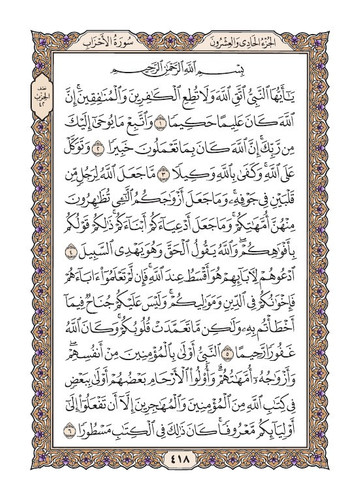 الجزء الحادي والعشرون
سورة الأحزاب
نصف
الحزب
٤٢
بِسْمِ اللَّهِ الرَّحْمَٰنِ الرَّحِيمِ
يَٰٓأَيُّهَا النَّبِيُّ اتَّقِ اللَّهَ وَلَا تُطِعِ الْكَٰفِرِينَ وَالْمُنَٰفِقِينَ إِنَّ
اللَّهَ كَانَ عَلِيمًا حَكِيمًا ١ وَاتَّبِعْ مَا يُوحَىٰٓ إِلَيْكَ
مِن رَّبِّكَ إِنَّ اللَّهَ كَانَ بِمَا تَعْمَلُونَ خَبِيرًا ٢ وَتَوَكَّلْ
عَلَى اللَّهِ وَكَفَىٰ بِاللَّهِ وَكِيلًا ٣ مَّا جَعَلَ اللَّهُ لِرَجُلٍ مِّن
قَلْبَيْنِ فِي جَوْفِهِ وَمَا جَعَلَ أَزْوَٰجَكُمُ الَّٰٓـِٔي تُظَٰهِرُونَ
مِنْهُنَّ أُمَّهَٰتِكُمْ وَمَا جَعَلَ أَدْعِيَآءَكُمْ أَبْنَآءَكُمْ ذَٰلِكُمْ قَوْلُكُم
بِأَفْوَٰهِكُمْ وَاللَّهُ يَقُولُ الْحَقَّ وَهُوَ يَهْدِي السَّبِيلَ ٤
ادْعُوهُمْ لِءَابَآئِهِمْ هُوَ أَقْسَطُ عِندَ اللَّهِ فَإِن لَّمْ تَعْلَمُوٓا ءَابَآءَهُمْ
فَإِخْوَٰنُكُمْ فِي الدِّينِ وَمَوَٰلِيكُمْ وَلَيْسَ عَلَيْكُمْ جُنَاحٌ فِيمَآ
أَخْطَأْتُم بِهِ وَلَٰكِن مَّا تَعَمَّدَتْ قُلُوبُكُمْ وَكَانَ اللَّهُ
غَفُورًا رَّحِيمًا ٥ النَّبِيُّ أَوْلَىٰ بِالْمُؤْمِنِينَ مِنْ أَنفُسِهِمْ
وَأَزْوَٰجُهُٓ أُمَّهَٰتُهُمْ وَأُولُوا الْأَرْحَامِ بَعْضُهُمْ أَوْلَىٰ بِبَعْضٍ
فِي كِتَٰبِ اللَّهِ مِنَ الْمُؤْمِنِينَ وَالْمُهَٰجِرِينَ إِلَّآ أَن تَفْعَلُوٓا إِلَىٰٓ
أَوْلِيَآئِكُم مَّعْرُوفًا كَانَ ذَٰلِكَ فِي الْكِتَٰبِ مَسْطُورًا ٦
٤١٨